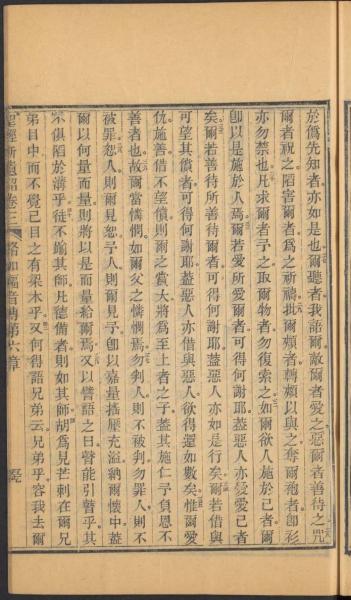 於僞先知者亦如是也爾聽者我語爾敵爾者愛之惡爾者善待之咒
爾者祝之陷害爾者爲之祈禱批爾頰者轉頰以與之奪爾袍者卽衫
亦勿禁也凡求爾者予之取爾物者勿復索之如爾欲人施於己者爾
卽以是施於人焉爾若愛所愛爾者可得何謝耶蓋惡人亦愛愛己者
矣爾若善待所善待爾者可得何謝耶蓋惡人亦如是行矣爾若借與
可望其償者可得何謝耶蓋惡人亦借與惡人欲得還如數矣惟爾愛
仇施善借不望償則爾之賞大將爲至上者之子蓋其施仁于負恩不
善者也故爾當憐憫如爾父之憐憫焉勿判人則不被判勿罪人則不
被罪恕人則爾見恕予人則爾見予卽以嘉量搖壓充溢納爾懷中蓋
爾以何量而量則將以是而量給爾焉又以譬語之曰瞽能引瞽乎其
不俱陷於溝乎徒不踰其師凡德備者則如其師胡爲見芒刺在爾兄
弟目中而不覺己目之有梁木乎又何得語兄弟云兄弟乎容我去爾
聖經新遺詔卷三 路加福音傳第六章